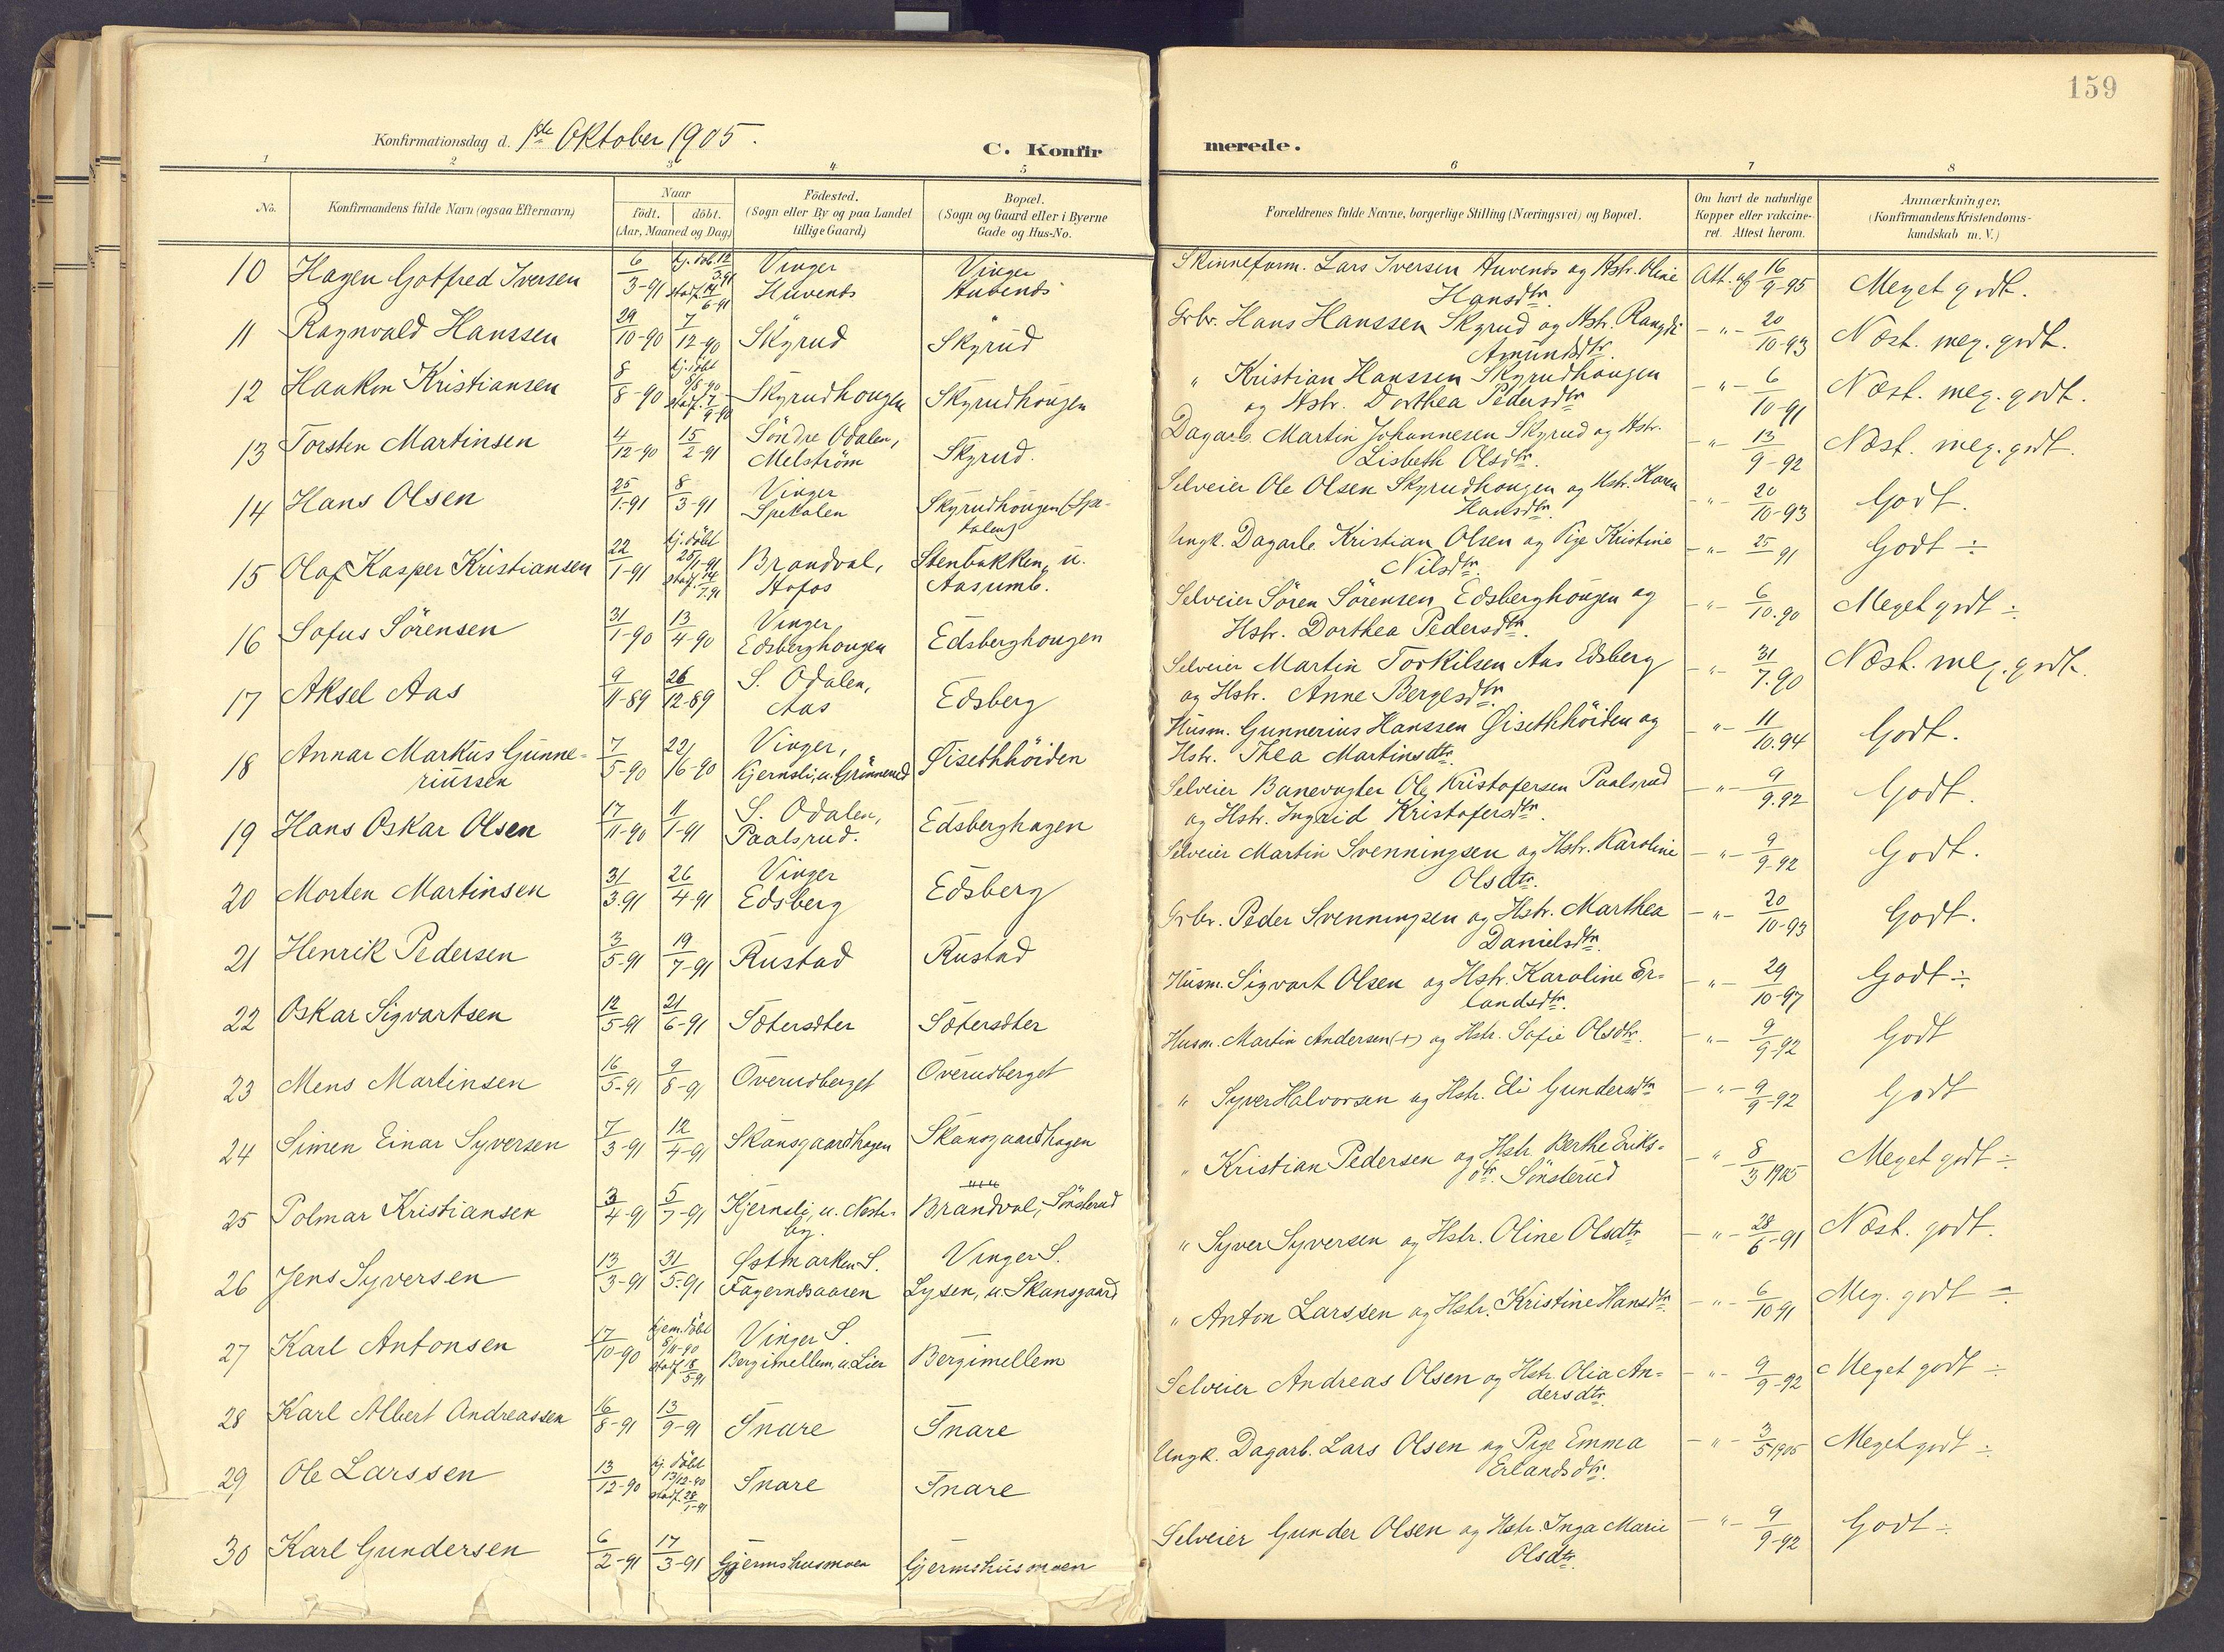 159
Konfirmationsdag d. 1ste Oktober 1905.
C. Konfirmerede.
1 2 3 4 5 6 7 8
No.
Konfirmandens fulde Navn (ogsaa Efternavn)
Naar
födt. döbt.
(Aar, Maaned og Dag)
Födested.
(Sogn eller By og paa Landet
tillige Gaard)
Bopæl.
(Sogn og Gaard eller i Byerne
Gade og Hus-No.
Forældrenes fulde Navne, borgerlige Stilling (Næringsvei) og Bopæl.
Om havt de naturlige
Kopper eller vakcine-
ret. Attest herom.
Anmærkninger,
(Konfirmandens Kristendoms-
kundskab m. V.)
10 Hagen Gotfred Iversen 6/3-91 hj. döb. 12/3.91 stadf. 14/6-91 Vinger Huvends Vinger Aubends Skinneform. Lars Iversen Auvends og Hstr. Oline Hansdtr. Att. af 16/9-95 Meget godt.
11 Ragnvald Hanssen 29/10-90 7/12-90 Skyrud Skyrud Grbr. Hans Hanssen Skyrud og Hstr. Rangdi Amundsdtr. -"- 20/10-93 Næst. meg. godt.
12 Haakon Kristiansen 8/8-90 hj. döbt 9/8 90 stadf. 7/9-90 Skyrudhougen Skyrudhougen " Kristian Hanssen Skyrudhougen og Hstr. Dorthea Pedersdtr -"- 6/10-91 Næst. meg. godt.
13 Torsten Martinsen 4/12-90 15/2-91 Söndre Odalen, Melström Skyrud. Dagarb. Martin Johannesen Skyrud og Hstr. Lisbeth Olsdtr. -"- 13/9-92 Næst. meg. godt.
14 Hans Olsen 25/1-91 8/3-91 Vinger Spetalen Skyrudhougen (Spetalen) Selveier Ole Olsen Skyrudhougen og Hstr. Karen Hansdtr. -"- 20/10-93 Godt.
15 Olaf Kasper Kristiansen 22/1-91 hj. döbt 25/1-91 stadf. 14/7.91 Brandval, Hofos Stenbakken, u. Aasumb. Ungk. Dagarb. Kristian Olsen og Pige Kristine Nilsdtr. -"- 25/91 Godt ÷
16 Sofus Sörensen 31/1-90 13/4-90 Vinger Edsberghougen Edsberghougen Selveier Sören Sörensen Edsberghougen og Hstr. Dorthea Pedersdtr. -"- 6/10.90 Meget godt ÷
17 Aksel Aas 9/11-89 26/12-89 S. Odalen, Aas Edsberg Selveier Martin Torkilsen Aas Edsberg og Hstr. Anne Bergesdtr. -"- 31/7.90 Næst. meg. godt.
18 Annar Markus Gunneriussen 7/5-90 22/6-90 Vinger, Kjernsli, u. Grönnerud Öisethhöiden Husm. Gunnerius Hanssen Öisethhöiden og Hstr. Thea Martinsdtr. -"- 11/10.94 Godt.
19 Hans Oskar Olsen 17/11-90 11/1-91 S. Odalen, Paalsrud. Edsberghagen Selveier Banevogter Ole Kristofersen Paalsrud og Hstr. Ingrid Kristofersdtr. -"- 9/9.92 Godt.
20 Morten Martinsen 31/3.91 26/4-91 Vinger Edsberg Edsberg Selveier Martin Svenningsen og Hstr. Karoline Olsdtr. -"- 9/9-92 Godt.
21 Henrik Pedersen 3/5-91 19/7-91 Rustad Rustad Grbr. Peder Svenningsen og Hstr. Marthea Danielsdtr. -"- 20/10-93 Godt.
22 Oskar Sigvartsen 12/5-91 21/6-91 Sötersdter Sötersdter Husm. Sigvart Olsen og Hstr. Karoline Erlandsdtr. -"- 29/10-97 Godt ÷
23 Mens Martinsen 16/5-91 9/8-91 Overudberget Overudberget Husm. Martin Andersen (+) og Hstr. Sofie Olsdtr. -"- 9/9-92 Godt
24 Simen Einar Syversen 7/3-91 12/4-91 Skansgaardhagen Skansgaardhagen " Syver Halvorsen og Hstr. Eli Gundersdtr -"- 9/9-92 Godt
25 Polmar Kristiansen 3/4-91 5/7-91 Kjernsli, u. Nesteby. Brandval, Sönsterud " Kristian Pedersen og Hstr. Berthe Eriksdtr. Sönsterud -"- 8/3 1905 Meget godt ÷
26 Jens Syversen 13/3-91 31/5-91 Östmarken S. Fagernæsaasen Vinger S. Lysen, u. Skansgaard " Syver Syversen og Hstr. Oline Olsdtr -"- 28/6-91 Næst. godt.
27 Karl Antonsen 17/10-90 hjem. döbt 9/11-90 stadf. 18/5-91 Vinger S. Bergimellem, u. Lier Bergimellem " Anton Larssen og Hstr. Kristine Hansdtr. -"- 6/10-91 Meg. godt ÷
28 Karl Albert Andreassen 16/8-91 13/9-91 Snare Snare Selveier Andreas Olsen og Hstr. Olia Andersdtr. -"- 9/9-92 Meget godt ÷
29 Ole Larssen 13/12-90 hj. döbt 13/12-90 stadf. 28/1-91 Snare Snare Ungk. Dagarb. Lars Olsen og Pige Emma Erlandsdtr. -"- 3/5 1905 Meget godt ÷
30 Karl Gundersen 6/2-91 17/3-91 Gjermshusmoen Gjermshusmoen Selveier Gunder Olsen og Hstr. Inga Marie Olsdtr. -"- 9/9-92 Godt ÷